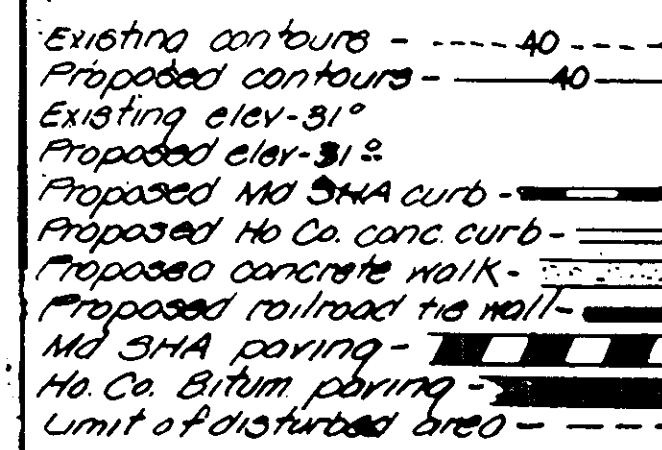 Existing contours - ----- 40 ----
Proposed contours - 40
Existing elev - 31°
Proposed elev - 31°
Proposed Md SHA curb -
Proposed Ho Co. conc. curb -
Proposed concrete walk -
Proposed railroad tie wall -
Md SHA paving -
Ho. Co. Bitum. paving -
Limit of disturbed area - - - -